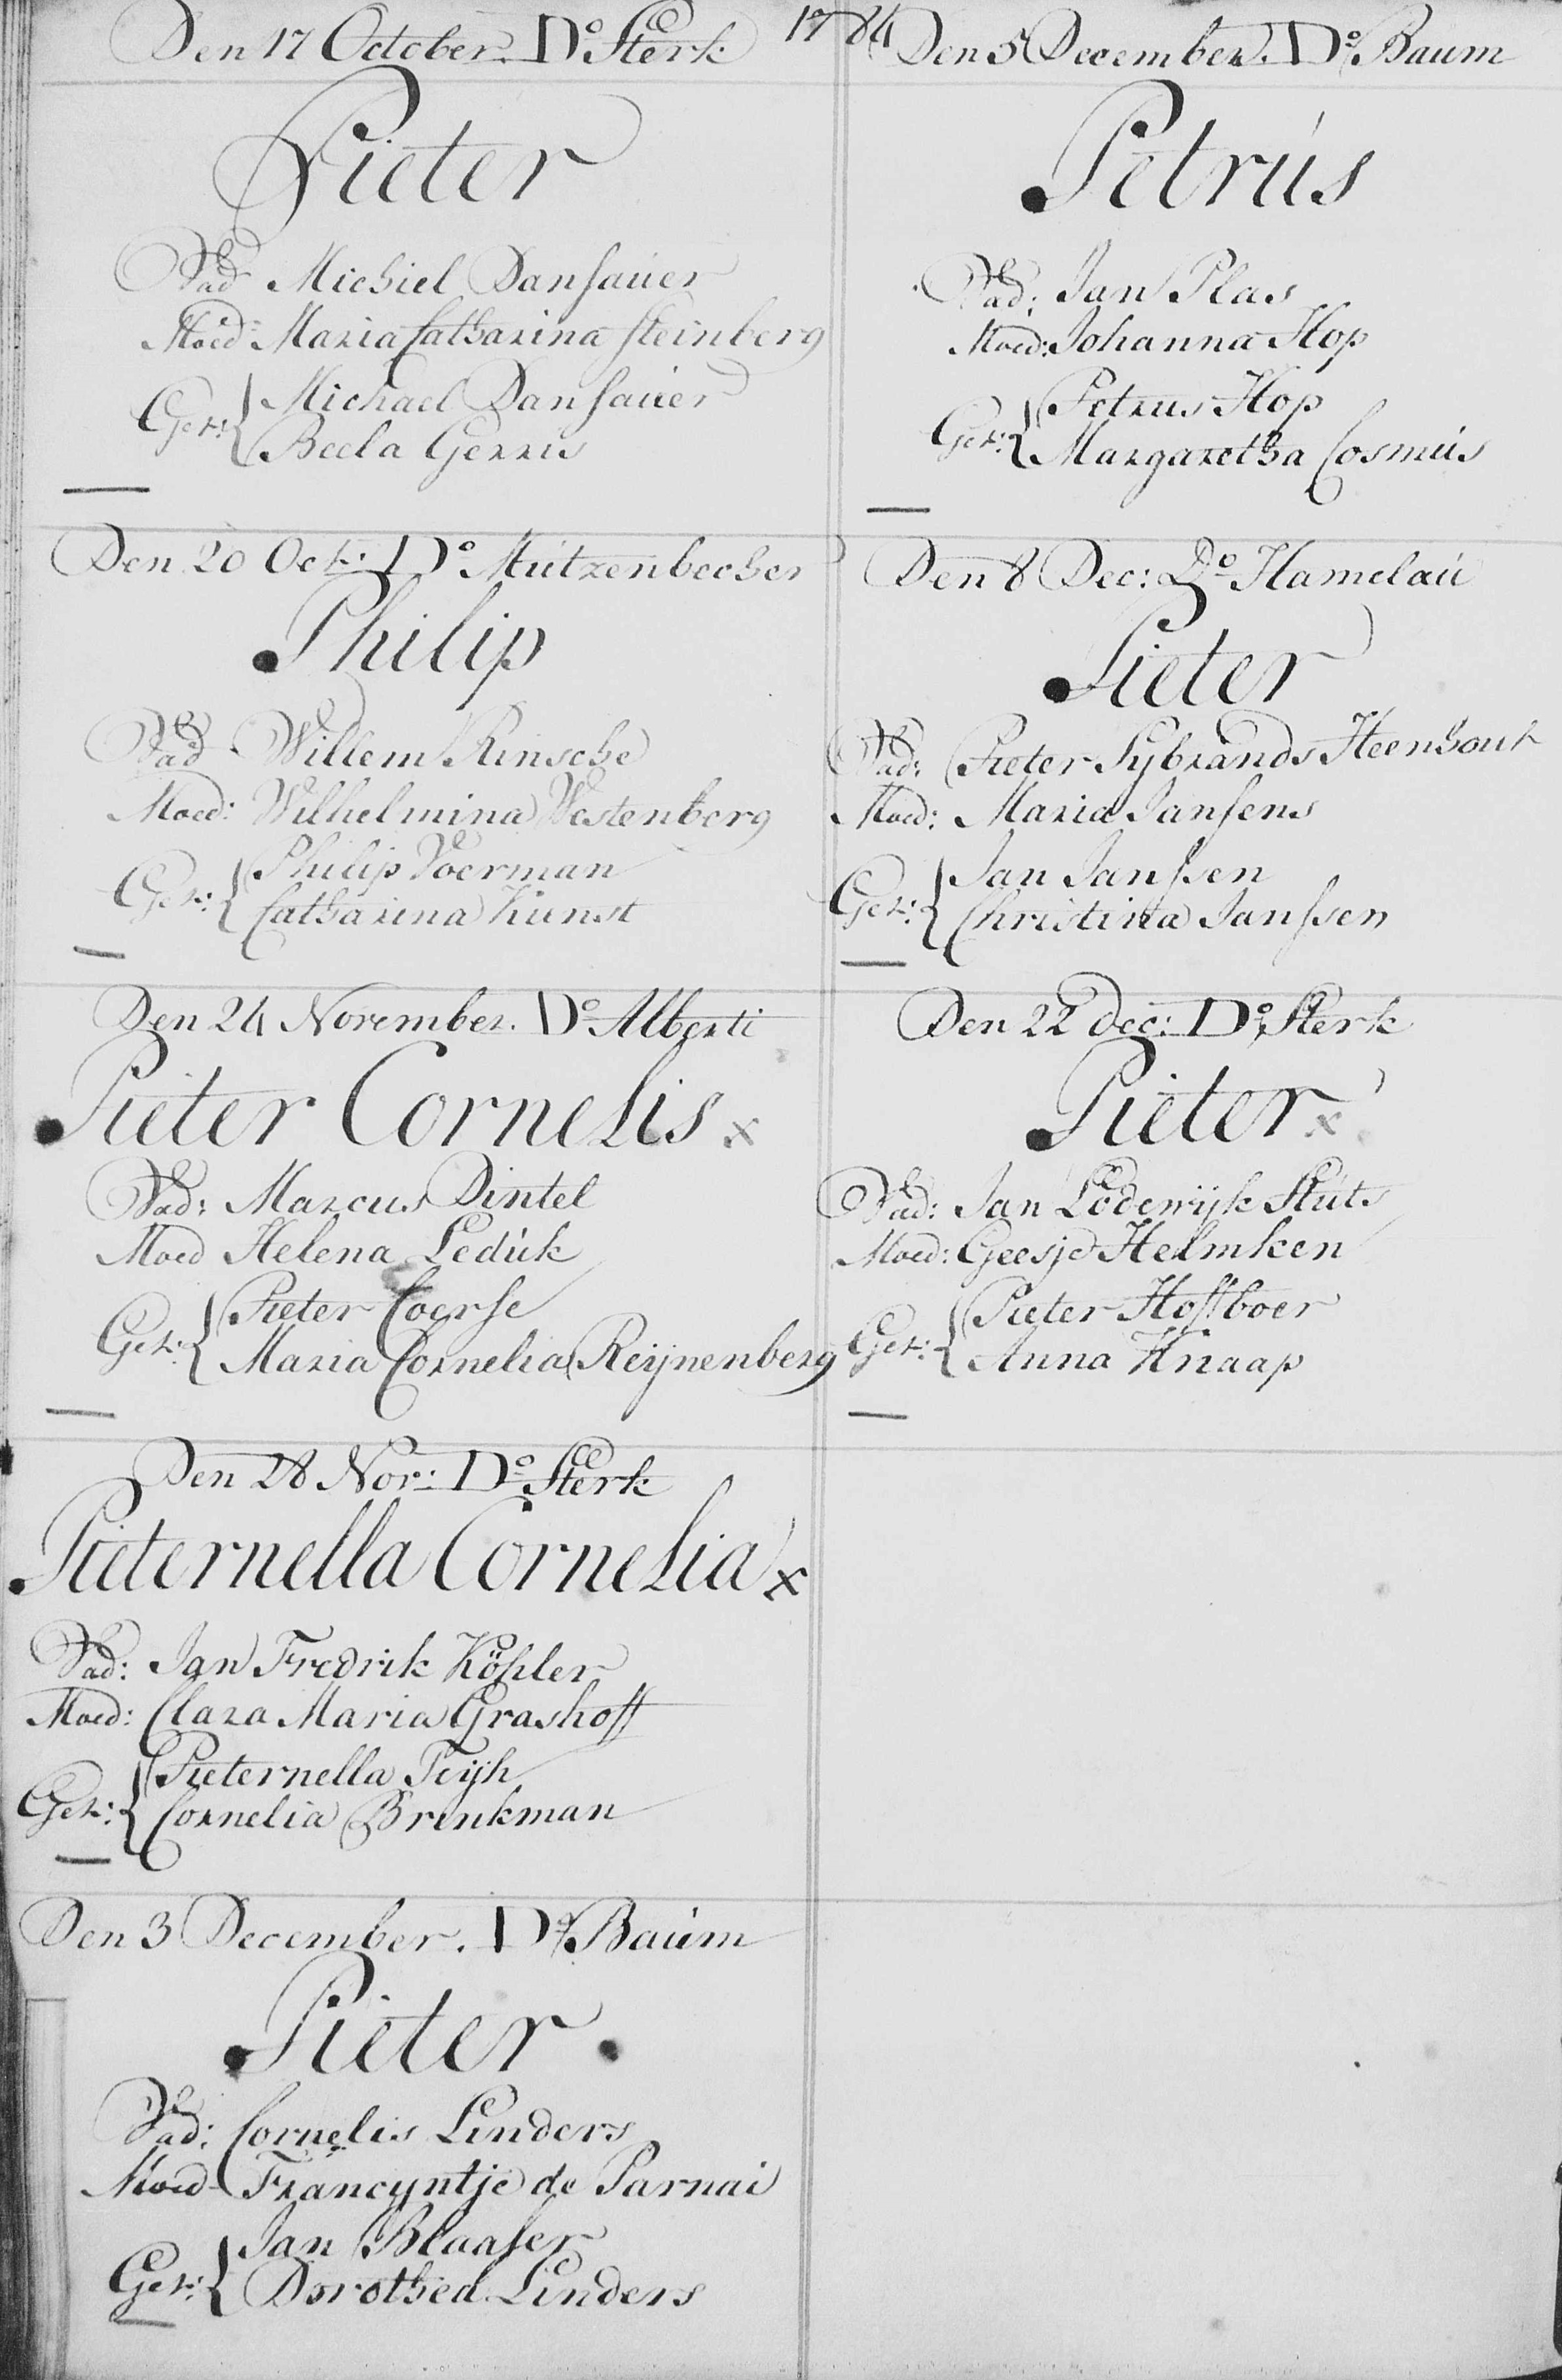 1784
Den 17 October. Do Sterk
Pieter
Vad Michiel Dansauer
Moed: Maria Catharina Steinberg
Get: Michael Dansauer
Beela Gerris
Den 20 Oct: Do Mutzenbecher
Philip
Vad Willem Rinsche
Moed: Wilhelmina Westenberg
Get: Philip Voerman
Catharina Kunst
Den 24 November. Do Alberti
Pieter Cornelis x
Vad: Marcus Dintel
Moed Helena Leduk
Get: Pieter Coerse
Maria Cornelia Reijnenberg
Den 28 Nov: Do Sterk
Pieternella Cornelia x
Vad: Jan Fredrik Köhler
Moed: Clara Maria Grashoff
Get: Pieternella Feijh
Cornelia Brinkman
Den 3 December. Do Baum
Pieter
Vad: Cornelis Linders
Moed Francyntje de Parnai
Get: Jan Blaaser
Dorothea Linders
Den 5 December. Do Baum
Petrus
Vad: Jan Plas
Moed: Johanna Hop
Get: Petrus Hop
Margaretha Cosmus
Den 8 Dec: Do Hamelau
Pieter
Vad: Pieter Sybrands Heenhout
Moed: Maria Jansens
Get: Jan Janssen
Christina Janssen
Den 22 Dec: Do Sterk
Pieter x
Vad: Jan Lodewijk Stuts
Moed: Geesje Helmken
Get: Pieter Hoffboer
Anna Knaap